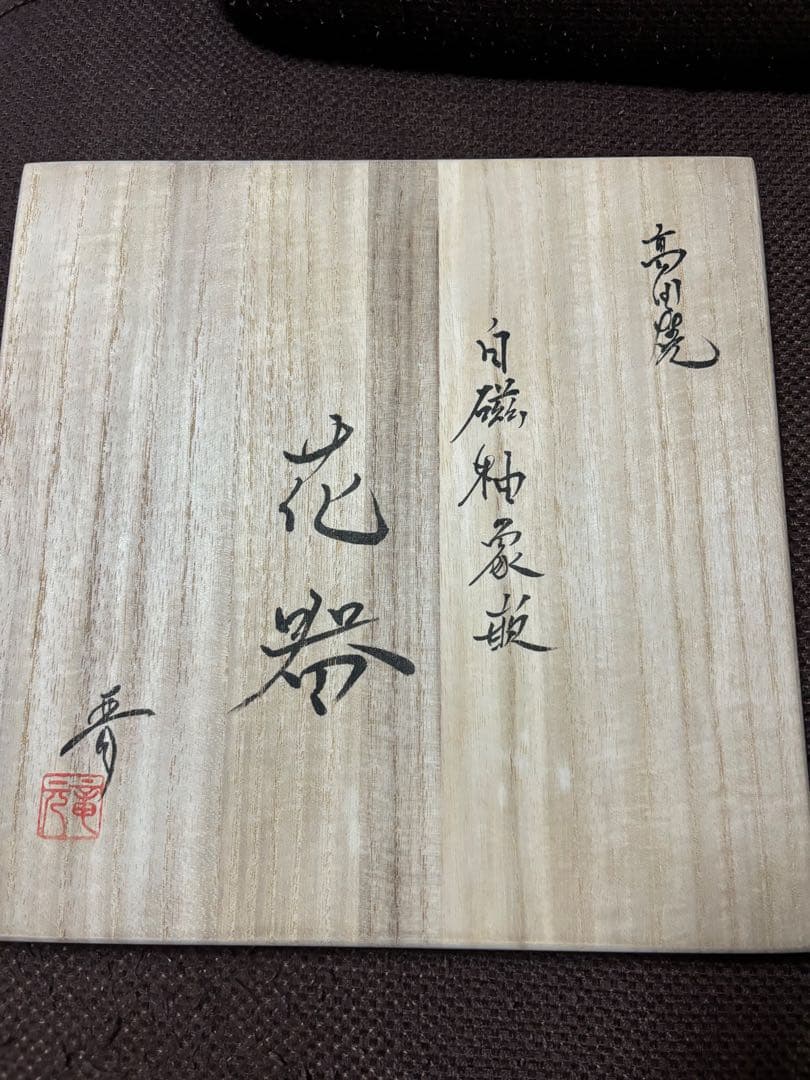 高田焼
白磁釉象嵌
花器
晋
竜元